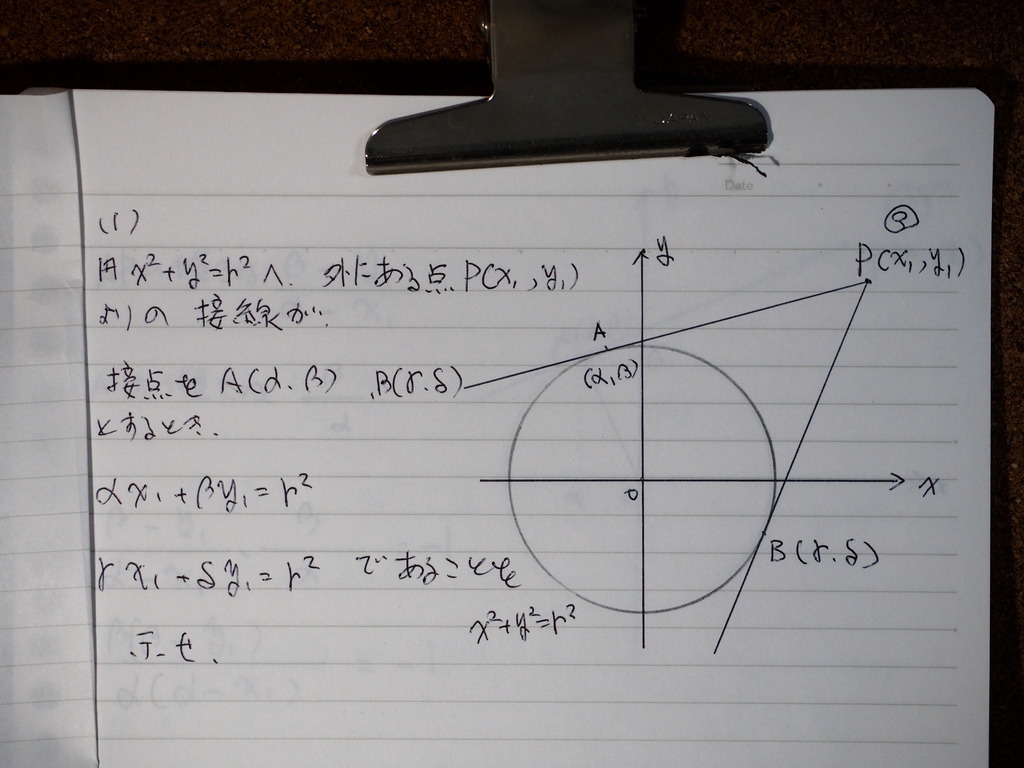 JAPAN
Date
(1)
円 x²+y²=r² へ. 外にある点 P(x₁, y₁)
よりの 接線が.
接点を A(α.β) B(γ.δ)
とするとき.
αx₁+βy₁=r²
γx₁+δy₁=r² であることを
示せ.
②
P(x₁, y₁)
y
A
(α,β)
O
x
B(γ.δ)
x²+y²=r²